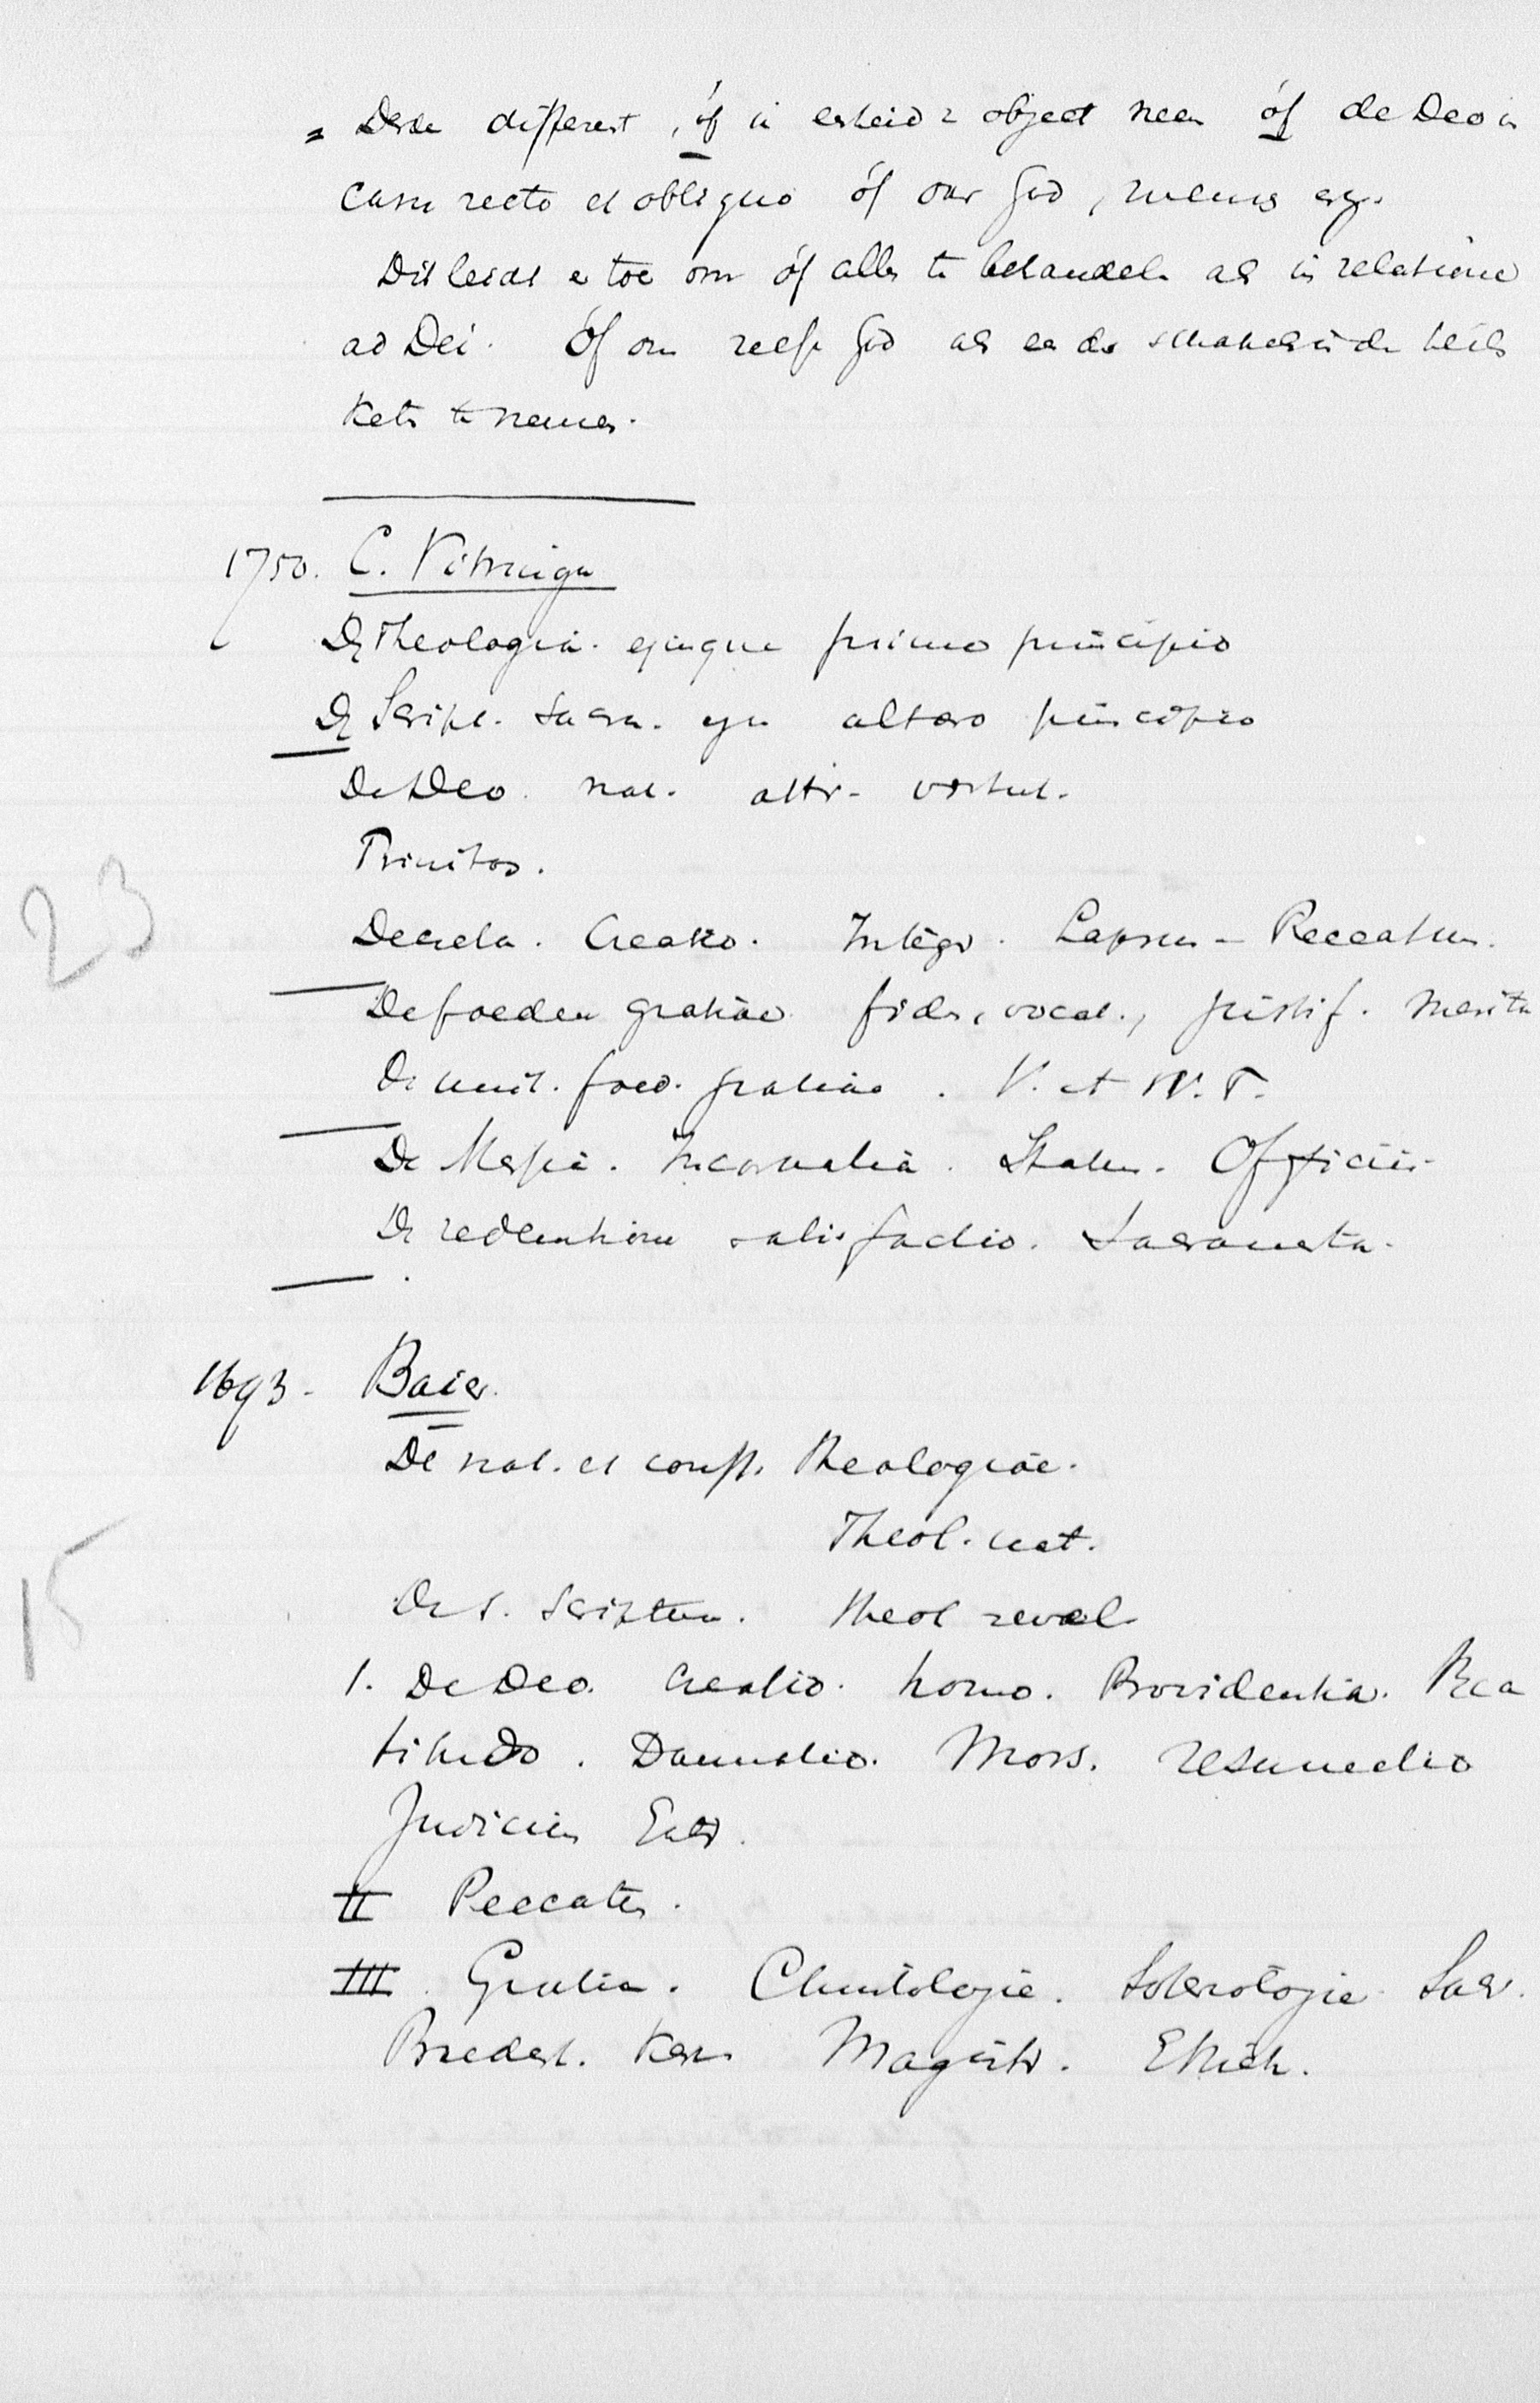 = Deze differentt, óf in eenheid v object neen óf de Deo in
casu recto et obliquo óf over God, mens enz.
Dit leidt er toe om óf alles te behandelen als in relatione
ad Dei. Óf om zelfs God als een der schakels in de heils
keten te nemen.
1750. C. Vitringa
De Theologia. ejusque primo principio
De Script. sacra. eju altero principio
De Deo. nat. attr. virtut.
Trinitas.
Decreta. Creatio. Integr. Lapsus - Peccatum.
De foedere gratiae fides, vocat., justif. merita
De unit. foed. gratiae. V. et N.T.
De Messia. Incarnatia. Status. Officiis.
De redemtione satisfactio. Sacramenta.
23
1693. Baier.
De nat. et const. theologiae.
Theol. nat.
De S. Scriptura. theol revel
1. De Deo. Creatio. homo. Providentia. Bea
titudo. Damnatio. Mors. resurrectio
Judicium Extr.
II Peccatum.
III. Gratia. Christologie. Soteriologie. Sacr.
Predest. Kerk Magistr. Ethiek.
15